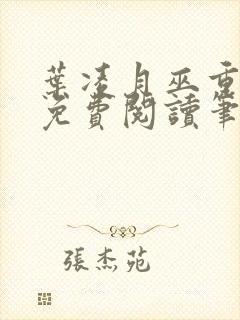 葉凌月巫重
免費閱讀筆
張杰苑